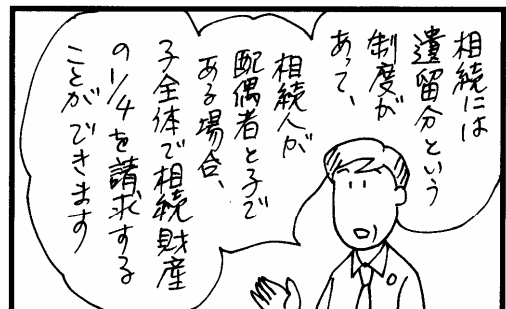 相続には
遺留分という
制度が
あって、
相続人が
配偶者と子で
ある場合、
子全体で相続財産
の1/4を請求する
ことができます